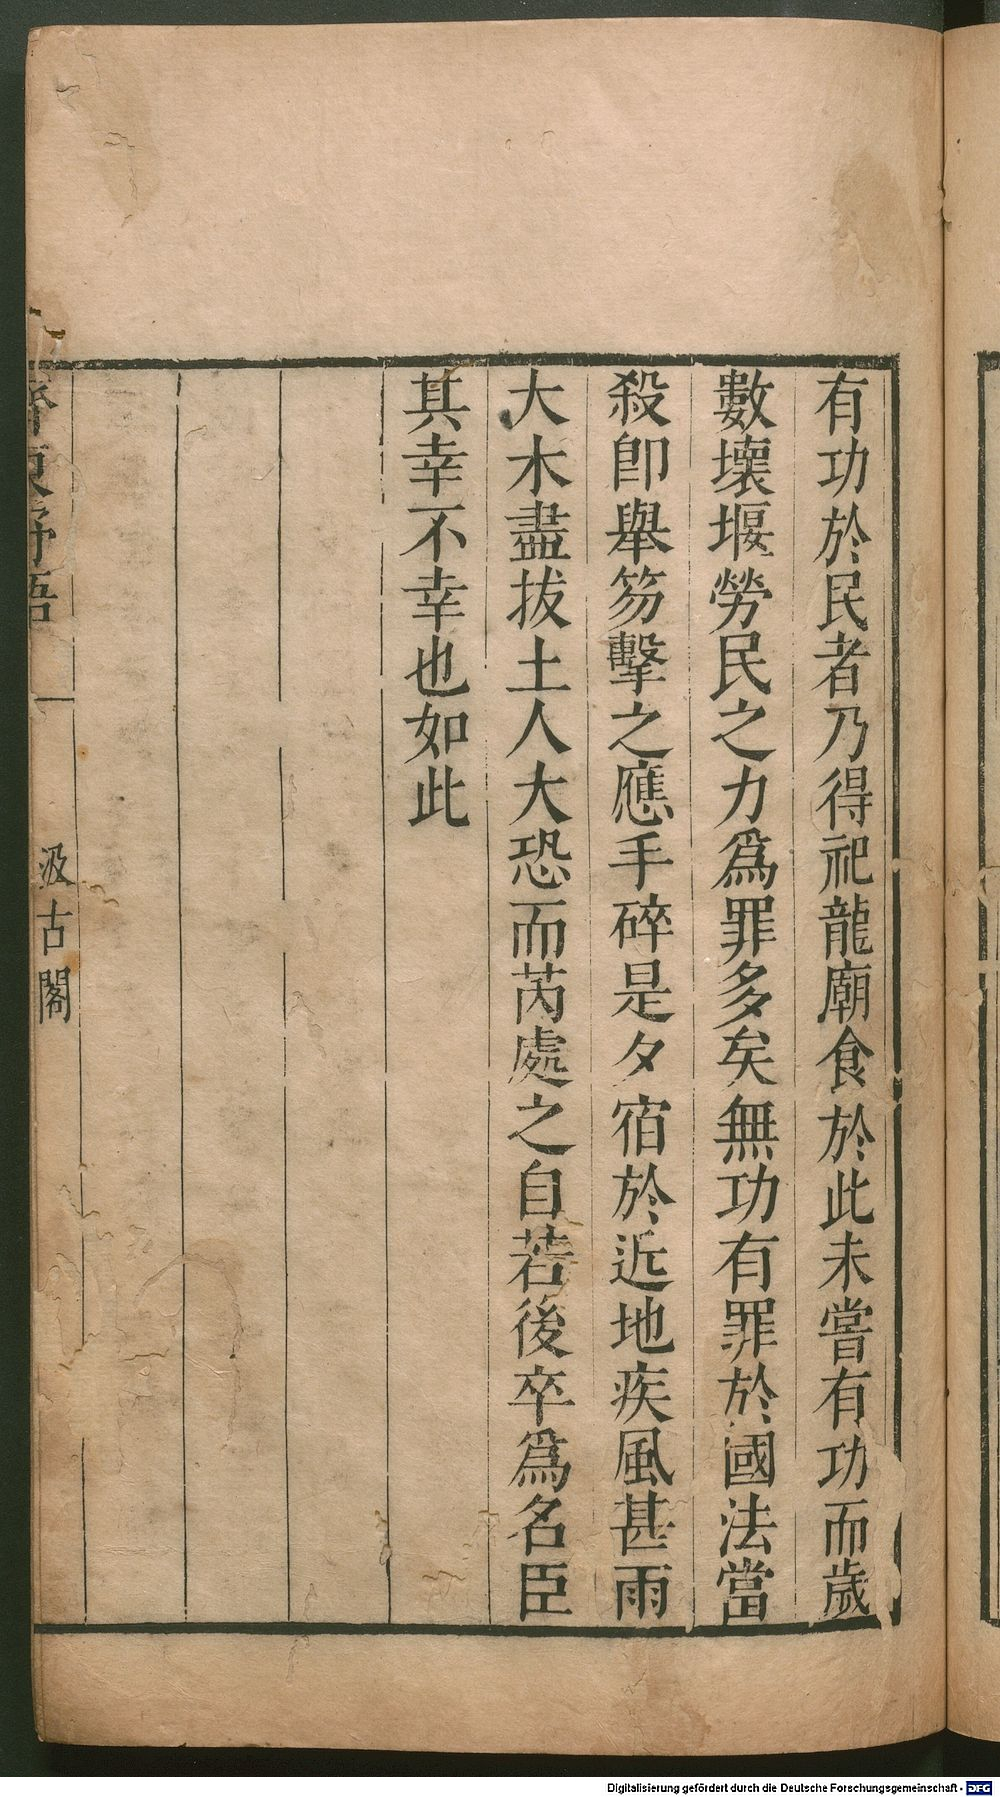 有功於民者乃得祀龍廟食於此未嘗有功而歲
數壞堰勞民之力爲罪多矣無功有罪於國法當
殺卽舉笏擊之應手碎是夕宿於近地疾風甚雨
大木盡拔土人大恐而芮處之自若後卒爲名臣
其幸不幸也如此
齊東野語
汲古閣
Digitalisierung gefördert durch die Deutsche Forschungsgemeinschaft - DFG